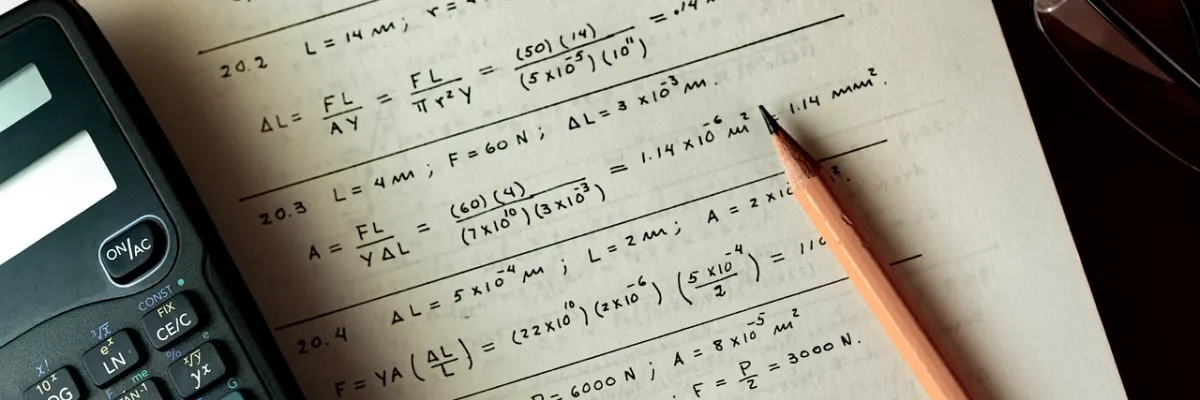 20.2 L = 14 m ; r =
ΔL = FL/AY = FL/πr²Y = (50)(14)/(5×10⁻⁵)(10¹¹) = .14
20.3 L = 4 m ; F = 60 N ; ΔL = 3 ×10⁻³ m.
A = FL/YΔL = (60)(4)/(7×10¹⁰)(3×10⁻³) = 1.14 ×10⁻⁶ m² = 1.14 mm².
20.4 ΔL = 5×10⁻⁴ m ; L = 2 m ; A = 2 ×10
F = YA (ΔL/L) = (22×10¹⁰)(2×10⁻⁶) (5×10⁻⁴/2) = 110
P = 6000 N ; A = 8×10⁻⁵ m²
F = P/2 = 3000 N.
ON/AC
CONST
FIX
CE/C
³√x
eˣ
LN
x!
10ˣ
%
e
ˣ√y
yˣ
me
TAN⁻¹
G